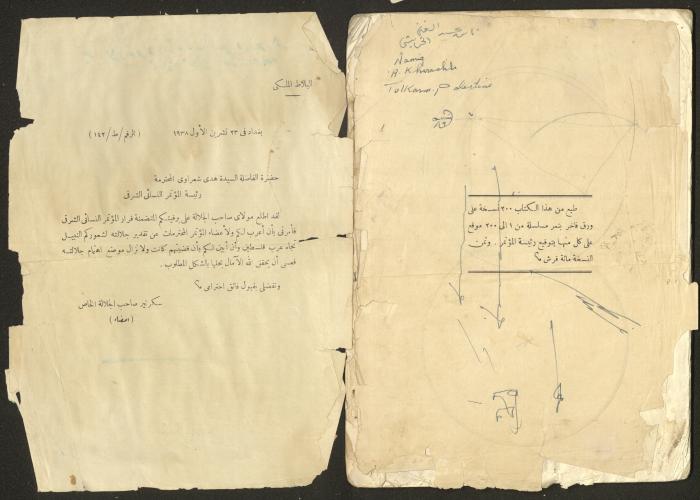 البلاط الملكى
بغداد فى ٢٣ تشرين الأول ١٩٣٨ (الرقم/ط/١٤٢)
حضرة الفاضلة السيدة هدى شعراوى المحترمة
رئيسة المؤتمر النسائى الشرقى
لقد اطلع مولاى صاحب الجلالة على برقيتكم المتضمنة قرار المؤتمر النسائى الشرقى
فأمرنى بأن أعرب لكم ولأعضاء المؤتمر المحترمات عن تقدير جلالته لشعوركم النبيل
تجاه عرب فلسطين وأن أبين لكم بأن قضيتهم كانت ولا تزال موضع اهتمام جلالته
فعسى أن يحقق الله الآمال بحلها بالشكل المطلوب.
وتفضلى بقبول فائق احترامى
سكرتير صاحب الجلالة الخاص
(امضاء)
عبد الغنى
Namiq
A. K
Tulkarm, Palestine
طبع من هذا الكتاب ٢٠٠ نسخة على
ورق فاخر بنمر مسلسلة من ١ الى ٢٠٠ موقع
على كل منها بتوقيع رئيسة المؤتمر. وثمن
النسخة مائة قرش